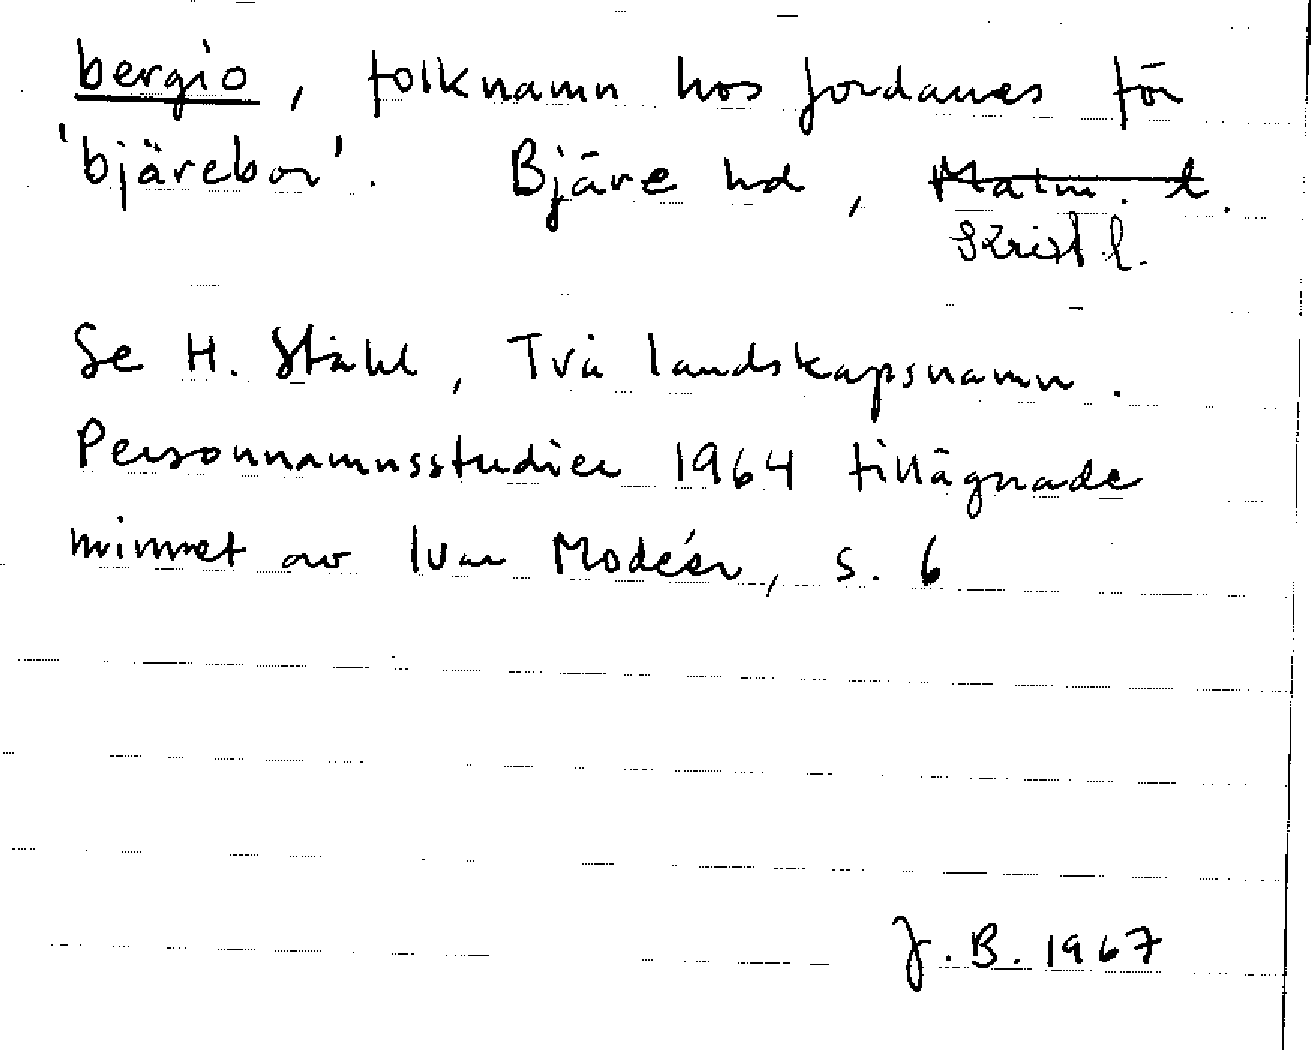 bergio, folknamn hos Jordanes för
'bjärebor'. Bjäre hd, Malm. l.
Krist l.
Se H. Ståhl, Två landskapsnamn.
Personnamnsstudier 1964 tillägnade
minnet av Ivar Modéer, s. 6
J. B. 1967